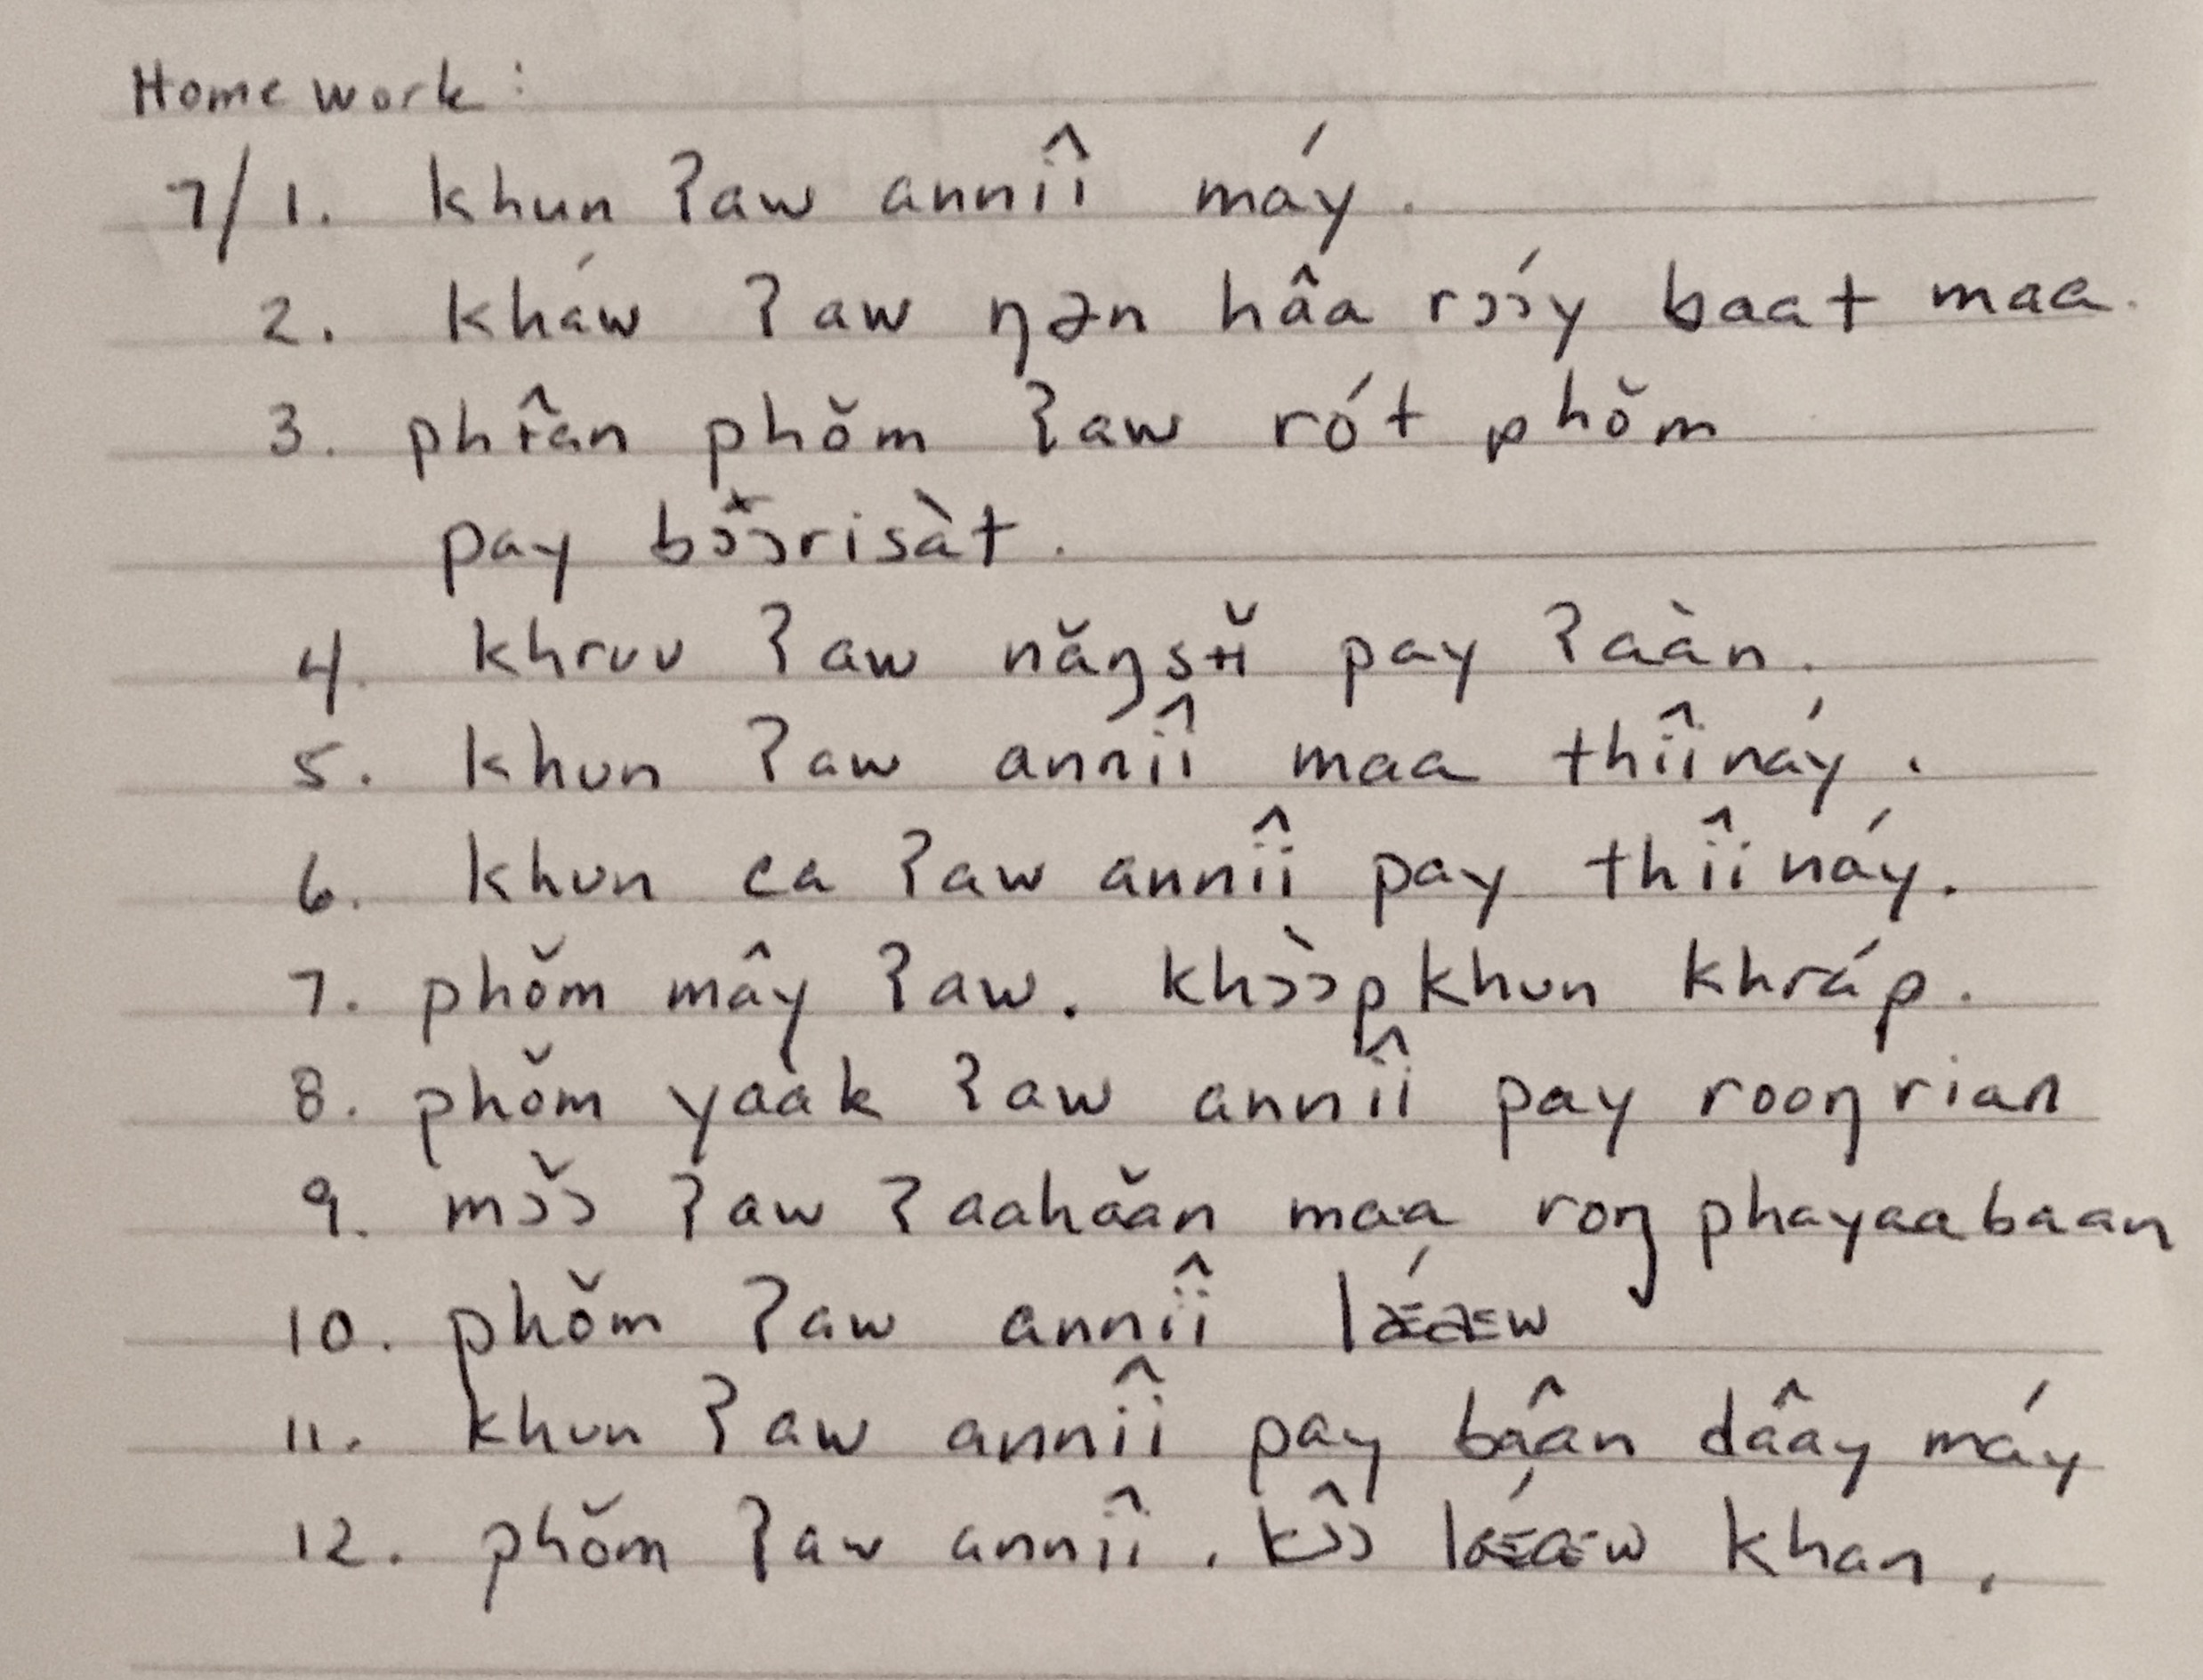 Homework:
7/1. khun ʔaw anníî máy.
2. kháw ʔaw ŋən hâa rɔɔ́y baat maa.
3. phɨ̂an phǒm ʔaw rót phǒm
pay bɔɔ̌risàt.
4. khruu ʔaw nǎŋsɨ̌ɨ pay ʔaàn.
5. khun ʔaw annîi maa thîináy.
6. khun ca ʔaw annîi pay thîináy.
7. phǒm mây ʔaw. khɔɔ̀pkhun khráp.
8. phǒm yaàk ʔaw annîi pay rooŋrian
9. mɔ̌ɔ ʔaw ʔaahǎan maa roŋ phayaabaan
10. phǒm ʔaw annîi lǽæw
11. khun ʔaw annîi pay bâan dâay máy
12. phǒm ʔaw annîi. kɔ̂ɔ lǽæw khan.